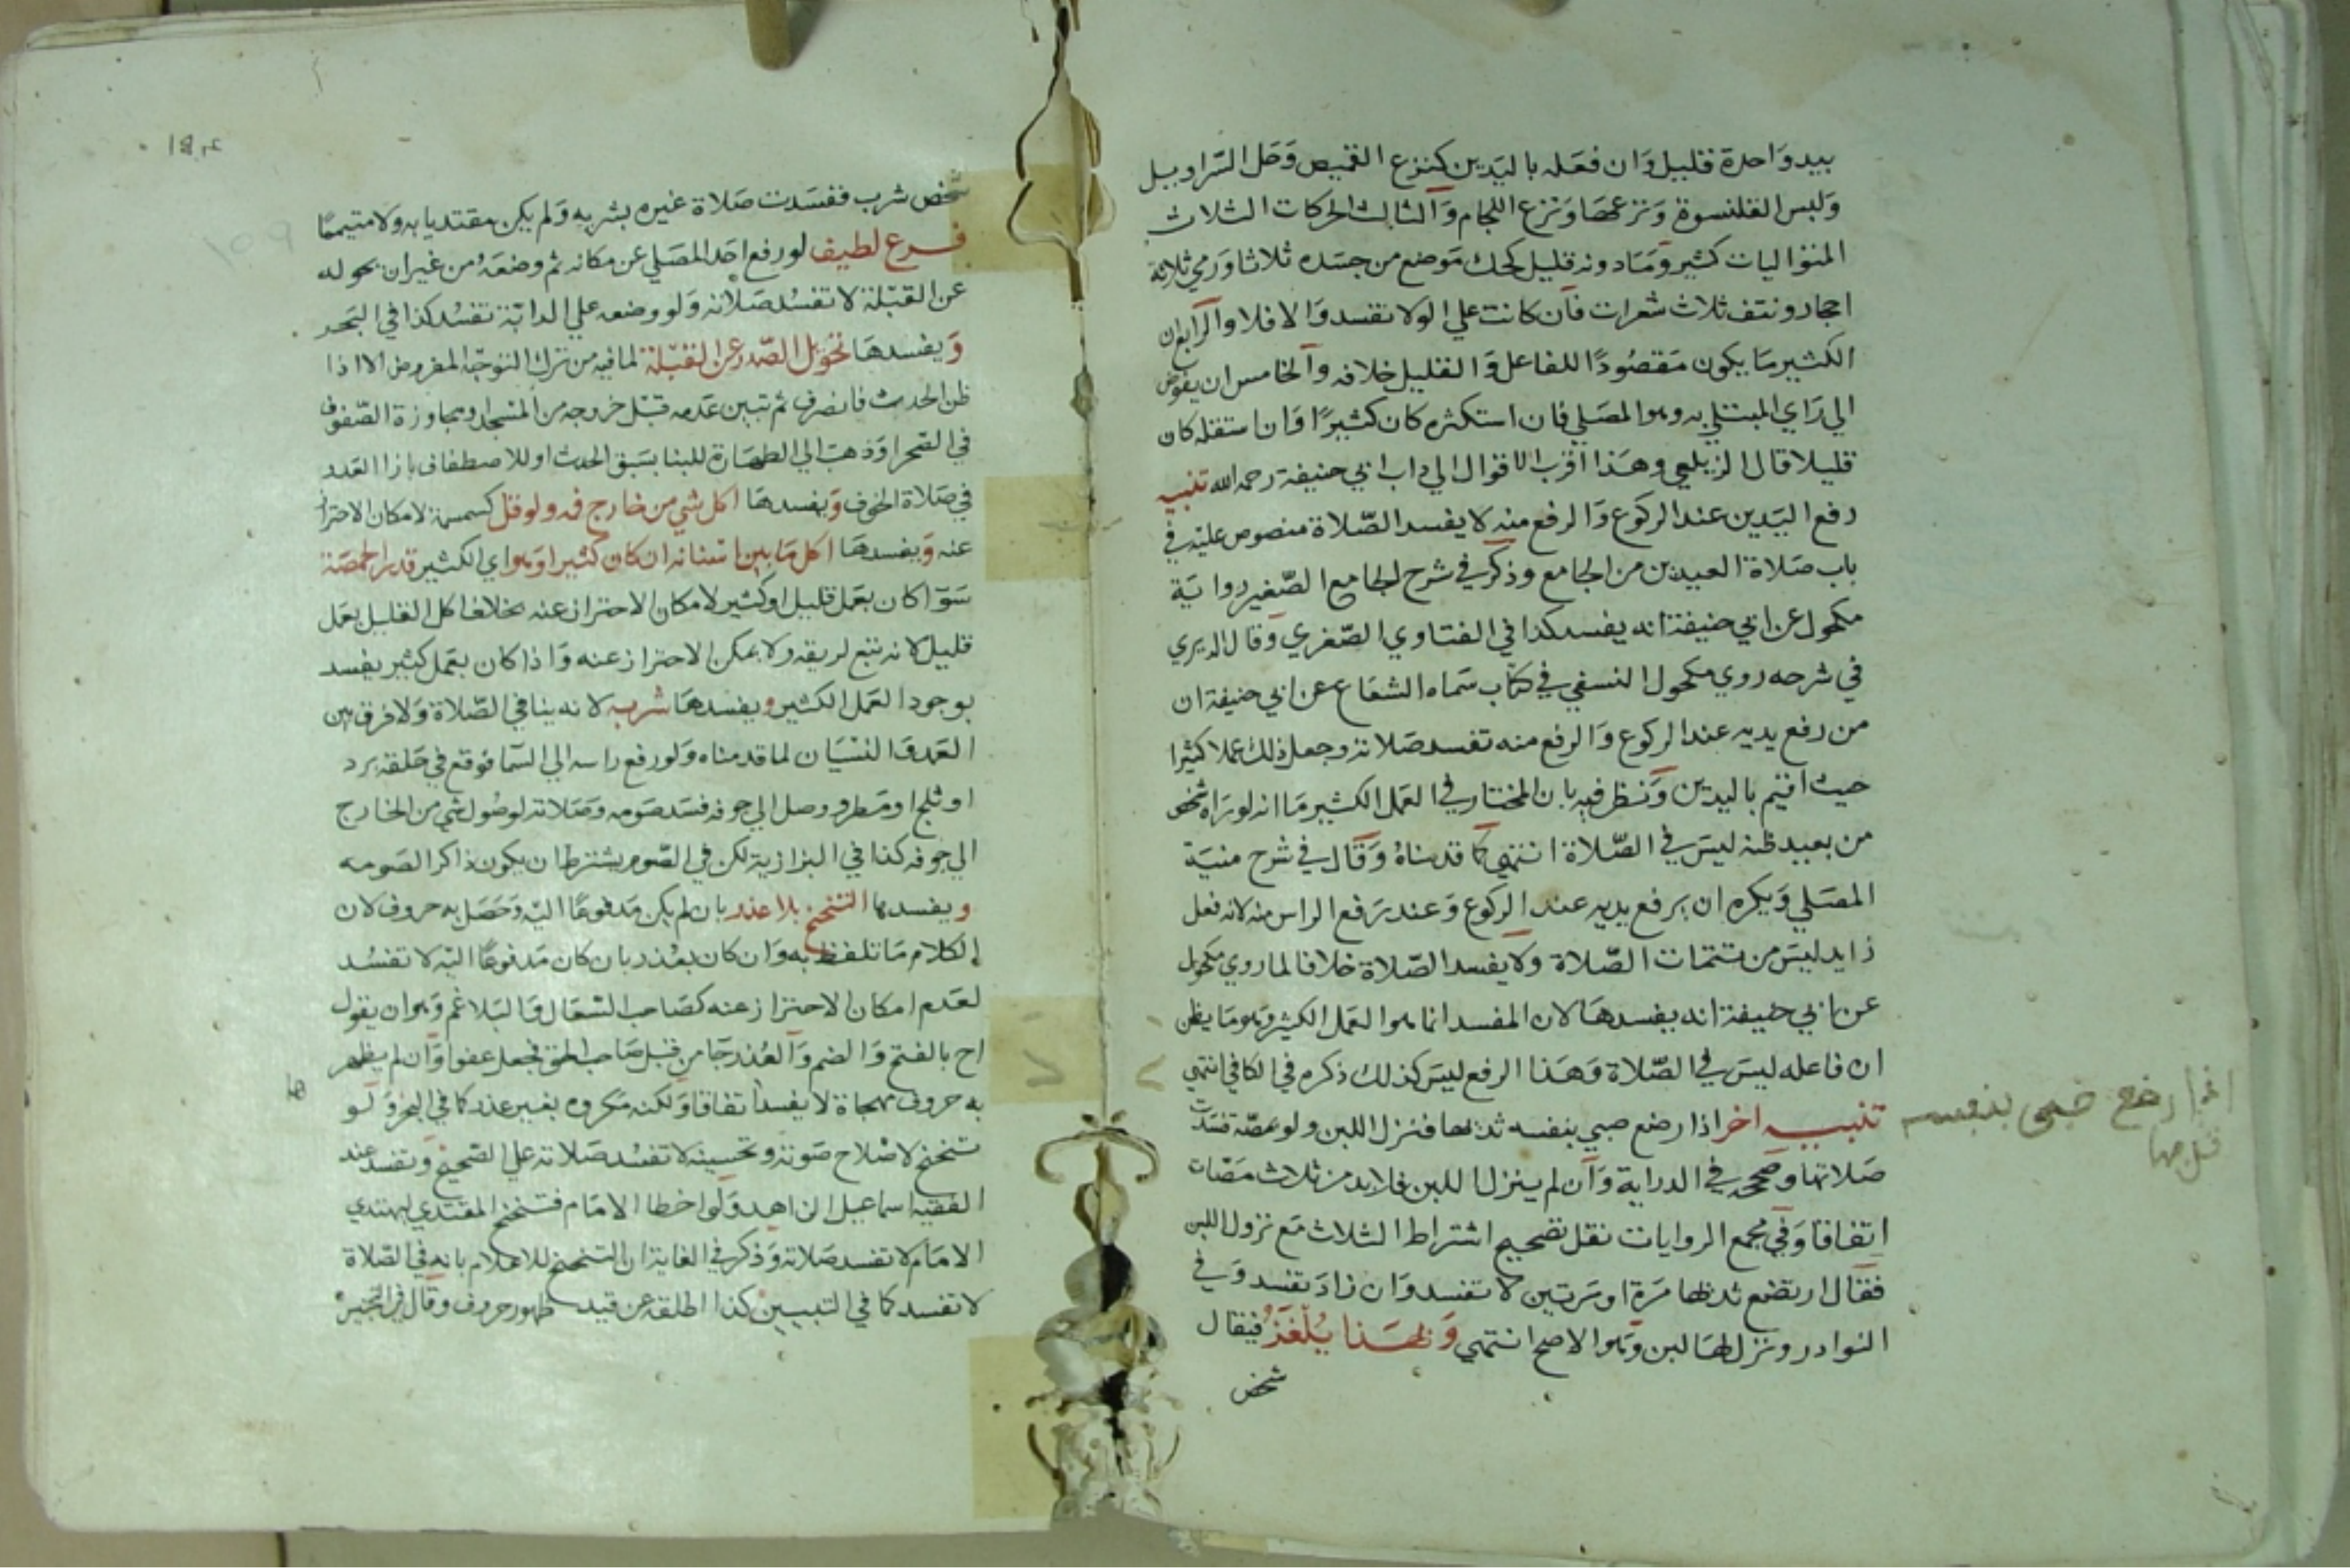 بيد واحدة فقليل وان فعله باليدين كنزع القميص وحل السراويل
ولبس القلنسوة ونزعها ونزع اللجام والثالث الحركات الثلاث
المتواليات كثير وما دونه قليل كحك موضع من جسده ثلاثا ورمي ثلاثة
احجار ونتف ثلاث شعرات فان كانت علي الولا تفسد والا فلا والرابع ان
الكثير ما يكون مقصودا للفاعل والقليل خلافه والخامس ان يفوض
الي راي المبتلي به وهو المصلي فان استكثره كان كثيرا وان استقله كان
قليلا قال الزيلعي وهذا اقرب الاقوال الي داب ابي حنيفة رحمه الله تنبيه
رفع اليدين عند الركوع والرفع منه لا يفسد الصلاة منصوص عليه في
باب صلاة العيدين من الجامع وذكر في شرح الجامع الصغير رواية
مكحول عن ابي حنيفة انه يفسد كذا في الفتاوي الصغري وقال الديري
في شرحه روي مكحول النسفي في كتاب سماه الشعاع عن ابي حنيفة ان
من رفع يديه عند الركوع والرفع منه تفسد صلاته وجعل ذلك عملا كثيرا
حيث اقيم باليدين ونظر فيه بان المختار في العمل الكثير ما انه لو راه شخص
من بعيد ظنه ليس في الصلاة انتهي كما قدمناه وقال في شرح منية
المصلي ويكره ان يرفع يديه عند الركوع وعند رفع الراس منه لانه فعل
زايد ليس من تتمات الصلاة ولا يفسد الصلاة خلافا لما روي مكحول
عن ابي حنيفة انه يفسدها لان المفسد انما هو العمل الكثير وهو ما يظن
ان فاعله ليس في الصلاة وهذا الرفع ليس كذلك ذكره في الكافي انتهي
تنبيه اخر اذا رضع صبي بنفسه ثديها فنزل اللبن ولو بمصة فسدت
صلاتها وصححه في الدراية وان لم ينزل اللبن فلا بد من ثلاث مصات
اتفاقا وفي مجمع الروايات نقل تصحيح اشتراط الثلاث مع نزول اللبن
فقال ارتضع ثديها مرة او مرتين لا تفسد وان زاد تفسد وفي
النوادر ونزل لها لبن وهو الاصح انتهي وبهذا يلغز فيقال
شخص
رضع صبي بنفسه
شخص شرب ففسدت صلاة غيره بشربه ولم يكن مقتديا به ولا متيمما
فرع لطيف لو رفع احد المصلي عن مكانه ثم وضعه من غير ان يحوله
عن القبلة لا تفسد صلاته ولو وضعه علي الدابة تفسد كذا في البحر
ويفسدها تحويل الصدر عن القبلة لما فيه من ترك التوجه المفروض الا اذا
ظن الحدث فانصرف ثم تبين عدمه قبل خروجه من المسجد او مجاوزة الصفوف
في الصحرا وذهب الي الطهارة للبنا بسبق الحدث او للاصطفاف بازا العدد
في صلاة الخوف ويفسدها اكل شي من خارج فمه ولو قل كسمسمة لامكان الاحتراز
عنه ويفسدها اكل ما بين اسنانه ان كان كثيرا وهو اي الكثير قدر الحمصة
سوا كان بعمل قليل او كثير لامكان الاحتراز عنه بخلاف اكل القليل بعمل
قليل لانه تبع لريقه ولا يمكن الاحتراز عنه واذا كان بعمل كثير يفسد
بوجود العمل الكثير ويفسدها شربه لانه ينافي الصلاة ولا فرق بين
العمد والنسيان لما قدمناه ولو رفع راسه الي السما فوقع في حلقه برد
او ثلج او مطر ووصل الي جوفه فسد صومه وصلاته لوصول شي من الخارج
الي جوفه كذا في البزازية لكن في الصوم يشترط ان يكون ذاكرا لصومه
ويفسدها التنحنح بلا عذر بان لم يكن مدفوعا اليه وحصل به حروف لان
الكلام ما تلفظ به وان كان بعذر بان كان مدفوعا اليه لا تفسد
لعدم امكان الاحتراز عنه كصاحب السعال والبلاغم وهو ان يقول
اح بالفتح والضم والعذر جا من قبل صاحب الحق فجعل عفوا وان لم يظهر
به حروف مهجاة لا يفسد اتفاقا ولكنه مكروه بغير عذر كما في البحر ولو
تنحنح لاصلاح صوته وتحسينه لا تفسد صلاته علي الصحيح وتفسد عند
الفقيه اسماعيل الزاهد ولو اخطا الامام فتنحنح المقتدي ليهتدي
الامام لا تفسد صلاته وذكر في الغاية ان التنحنح للاعلام بانه في الصلاة
لا تفسد كما في التبيين كذا اطلقه عن قيد ظهور حروف وقال في المجتبي